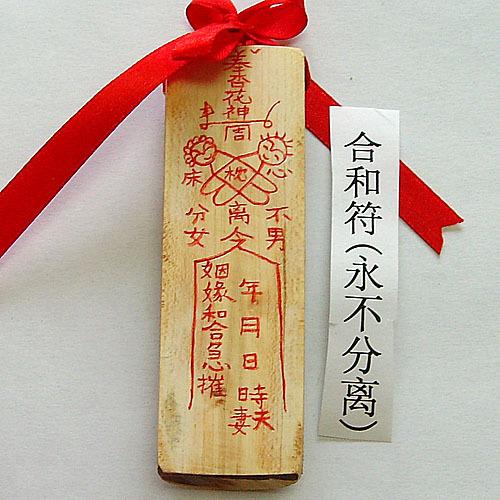 杏花神周
心枕床
不离分
男令女
年月日時
夫妻
姻緣和合急摧
合和符(永不分离)